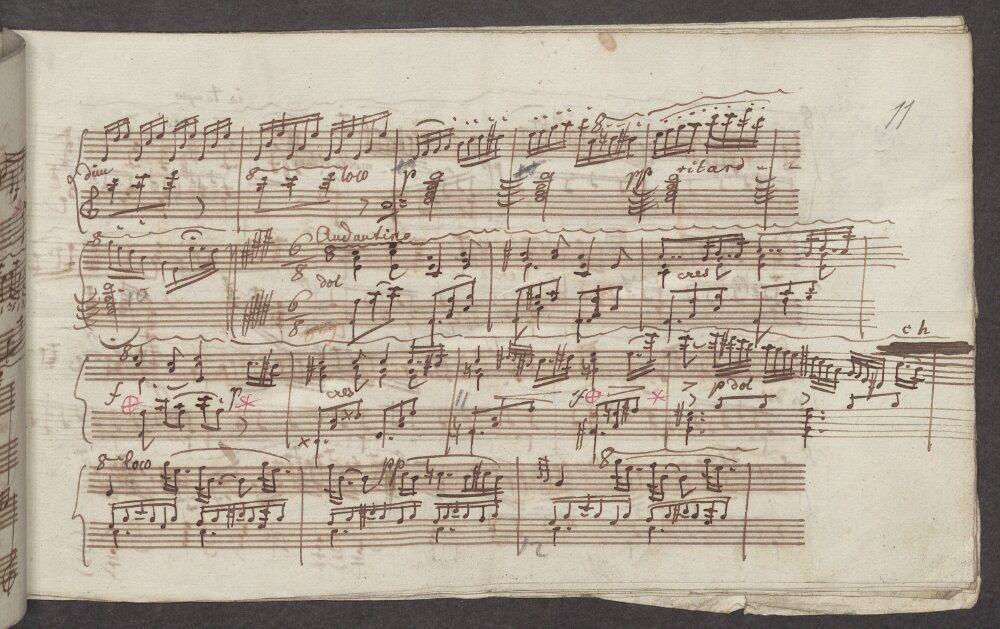 11
8 loco p pp ritard
8 Andantino
6 8 dol cres
6 8
ch
8
f p cres f p dol
8 loco pp 8